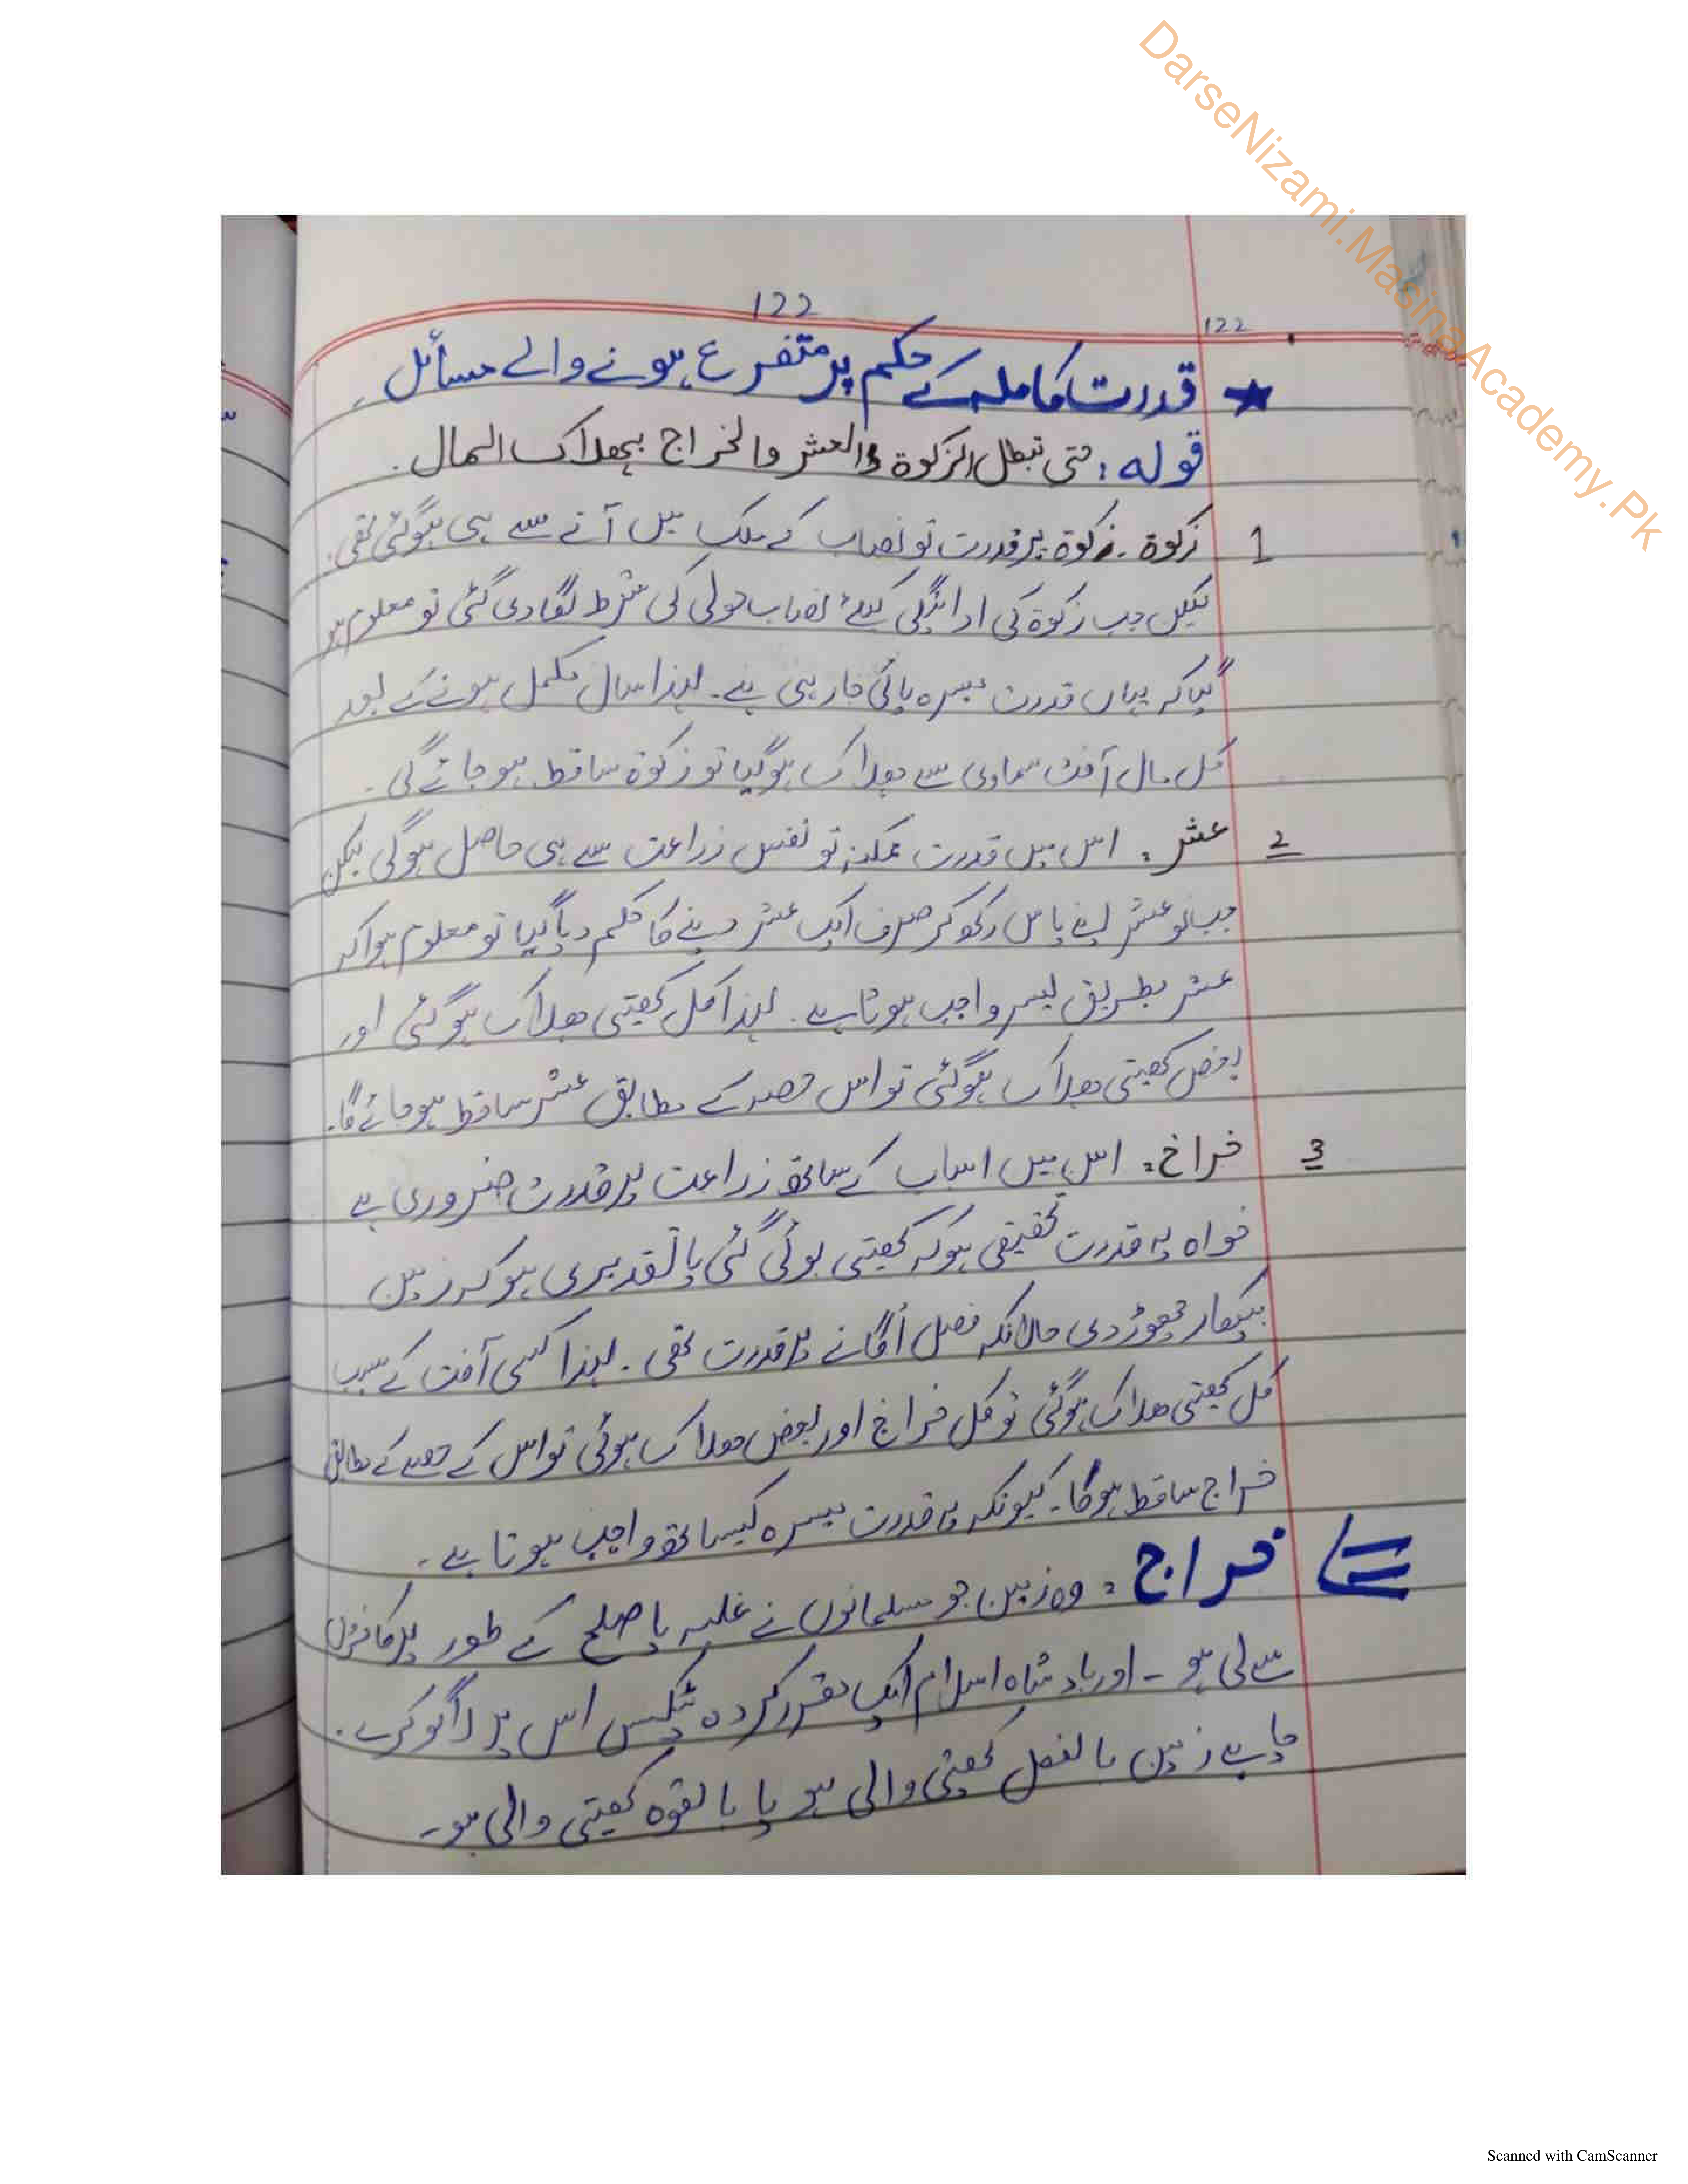 DarseNizami.MasinaAcademy.Pk
122
122
★ قدرت کاملہ کے حکم پر متفرع ہونے والے مسائل
قولہ: حتی تبطل الزکوة والعشر والخراج بھلاک المال.
1 زکوة ۔ زکوة پر قدرت تو نصاب کے ملک میں آنے سے ہی ہوگئی تھی.
لیکن جب زکوة کی ادائیگی کیلئے نصاب حولی کی شرط لگا دی گئی تو معلوم ہو
گیا کہ یہاں قدرت میسرہ پائی جارہی ہے۔ لہذا سال مکمل ہونے کے بعد
کل مال آفت سماوی سے ھلاک ہوگیا تو زکوة ساقط ہو جائے گی ۔
2 عشر: اس میں قدرت ممکنہ تو نفس زراعت سے ہی حاصل ہوگی لیکن
جب نو عشر اپنے پاس رکھ کر صرف ایک عشر دینے کا حکم دیا گیا تو معلوم ہوا کہ
عشر بطریق یسر واجب ہوتا ہے. لہذا کل کھیتی ھلاک ہوگئی اور
بعض کھیتی ھلاک ہوگئی تو اس حصہ کے مطابق عشر ساقط ہو جائے گا۔
3 خراخ: اس میں اسباب کے ساتھ زراعت پر قدرت ضروری ہے
خواہ یہ قدرت تحقیقی ہو کہ کھیتی بوئی گئی یا تقدیری ہو کہ زمین
بیکار چھوڑ دی حالانکہ فصل اُگانے پر قدرت تھی ۔ لہذا کسی آفت کے سبب
کل کھیتی ھلاک ہوگئی تو کل خراج اور بعض ھلاک ہوئی تو اس کے حصے کے مطابق
خراج ساقط ہوگا۔ کیونکہ یہ قدرت میسرہ کیساتھ واجب ہوتا ہے ۔
خراج: وہ زمین جو مسلمانوں نے غلبہ یا صلح کے طور پر کافروں
سے لی ہو ۔ اور بادشاہ اسلام ایک مقرر کردہ ٹیکس اس پر لاگو کرے ۔
چاہے زمین بالفعل کھیتی والی ہو یا بالقوہ کھیتی والی ہو۔
Scanned with CamScanner